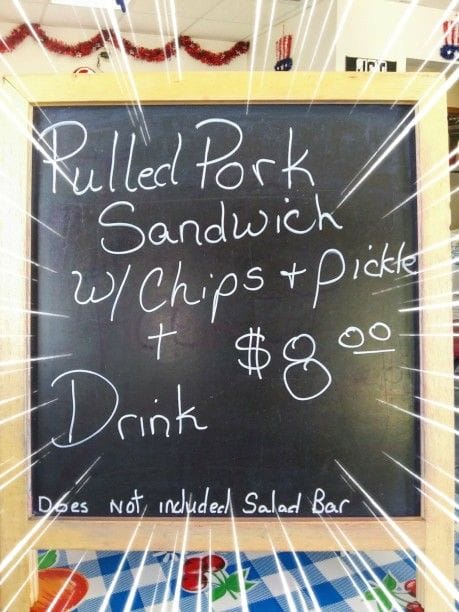 Pulled Pork
Sandwich
w/ Chips + Pickle
+ $8.00
Drink
Does Not included Salad Bar